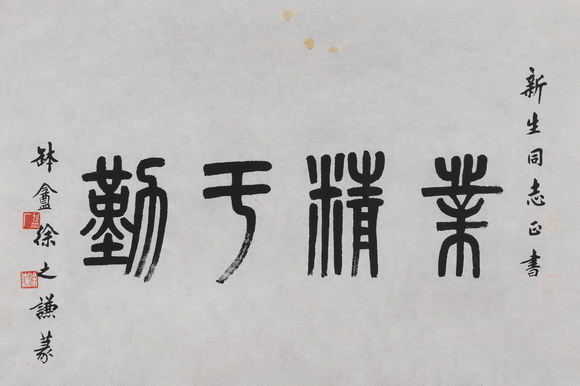 新生同志正书
业精于勤
缽盦徐之謙篆